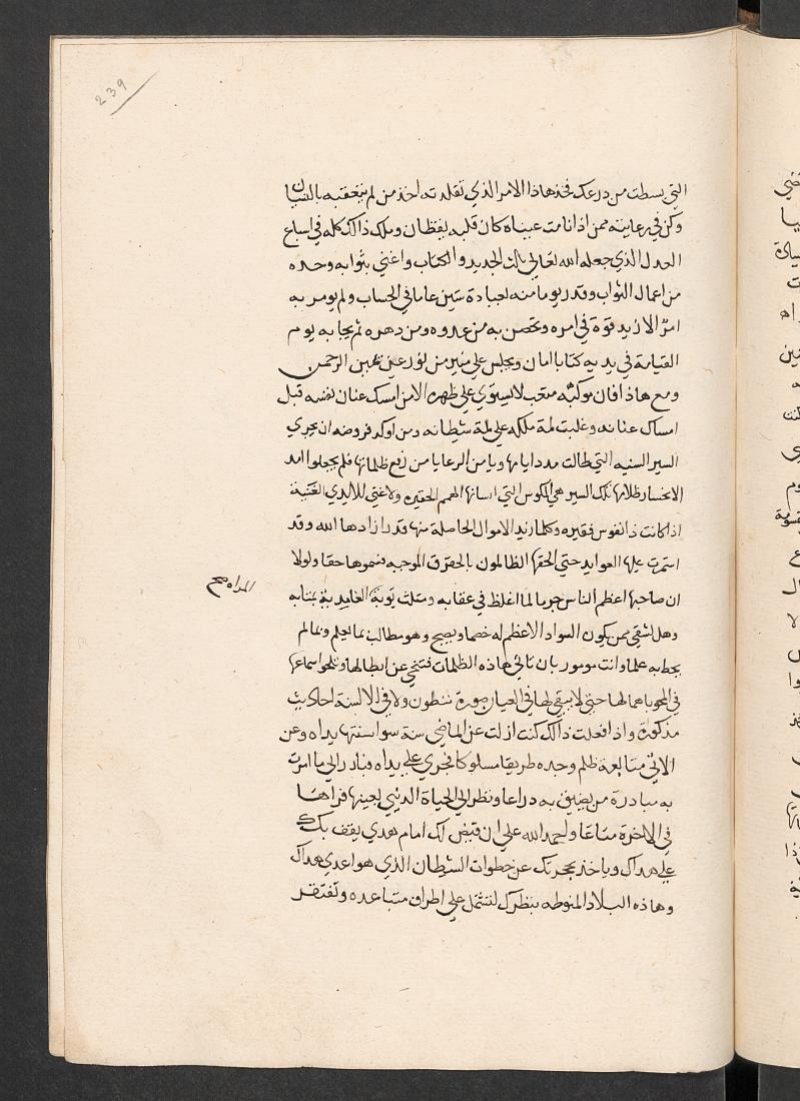 239
التي بسطت من درعك فخذ هاذا الامر الذي تقلدته اخذ من لم يتعقبه بالنسيان
وكن في رعايته ممن اذا نامت عيناه كان قلبه يقظان وملاك ذالك كله في اسباغ
العدل الذي جعله الله تعالى ثالث الحديد والكتاب واغني بثوابه وحده
من اعمال الثواب وقدر يوما منه بعبادة ستين عاما في الحساب ولم يومر به
امر الا زيد قوة في امره وتحصن به من عدوه ومن دهره ثم يجا به يوم
القيامة في يديه كتابا امان ويجلس على منبر من نور عن يمين الرحمن
ومع هاذا فان مركبه صعب لا يستوي على ظهره الا من امسك عنان نفسه قبل
امساك عنانه وغلبت لمة ملكه على لمة شيطانه ومن اوكد فروضه ان يمحي
السير السنيه التي طالت مدد ايامها ويا من الرعايا من رفع ظلماتها فلم يجعلوا امد
الانحسار ظلامها تلك السير هي المكوس التي انسانها الهمم الحقيره ولا غني للايدي الغنية
اذا كانت ذا نفوس فقيره وكلما زيد الاموال الحاصلة منها قدرا زادها الله وقد
استمرت عليها العوايد حتي الحقها الظالمون بالحقوق الموجبه فسموها حقا ولولا
ان صاحبها اعظم الناس جرما لما اغلظ في عقابه ومثلت توبة الغامدية بمتابه
المراه صح
وهل اشقي ممن يكون السواد الاعظم له خصما ويصبح وهو مطالب بما يعلم وبما لم
يحط به علما وانت مومور بان تاتي هاذه الظلمات فتنحي عن ابطالها وتلحق اسماءها
في المحو بافعالها حتى لا يبقي لها في العيان صورة تنظر ولا في الالسنة احاديث
مذكورة واذا فعلت ذالك كنت ازلت عن الماضي سنة سوا سنتها يداه وعن
الاتي متابعة ظلم وجده طريقا مسلوكا فجري على يداه فبادر الي ما امرت
به مبادرة من يضيق به دراعا ونظر الي الحياة الدنيى بعينها فراها
في الاخرة متاعا واحمد الله على ان قيض لك امام هدي يقف بك
على هداك وياخذ بحجزتك عن خطوات الشيطان الذي هو اعدي عداك
وهاذه البلاد المنوطه بنظرك لتشتمل على اطراف متباعده وتفتقر